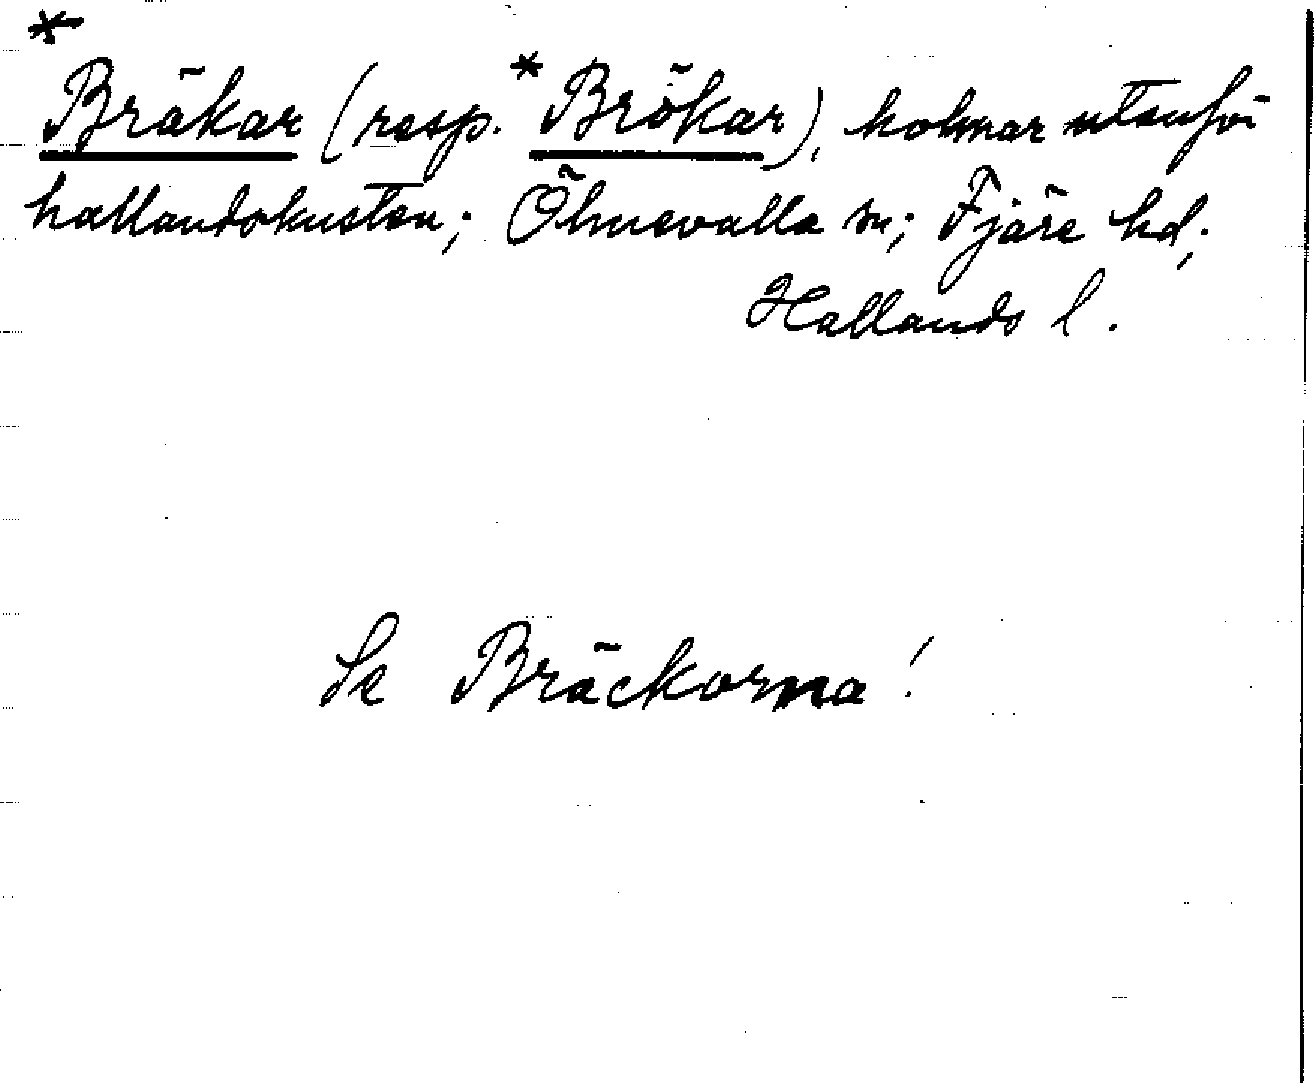 *
Bräkar (resp. *Brökar), holmar utanför
hallandskusten; Ölmevalla sn; Fjäre hd;
Hallands l.
Se Bräckorna!